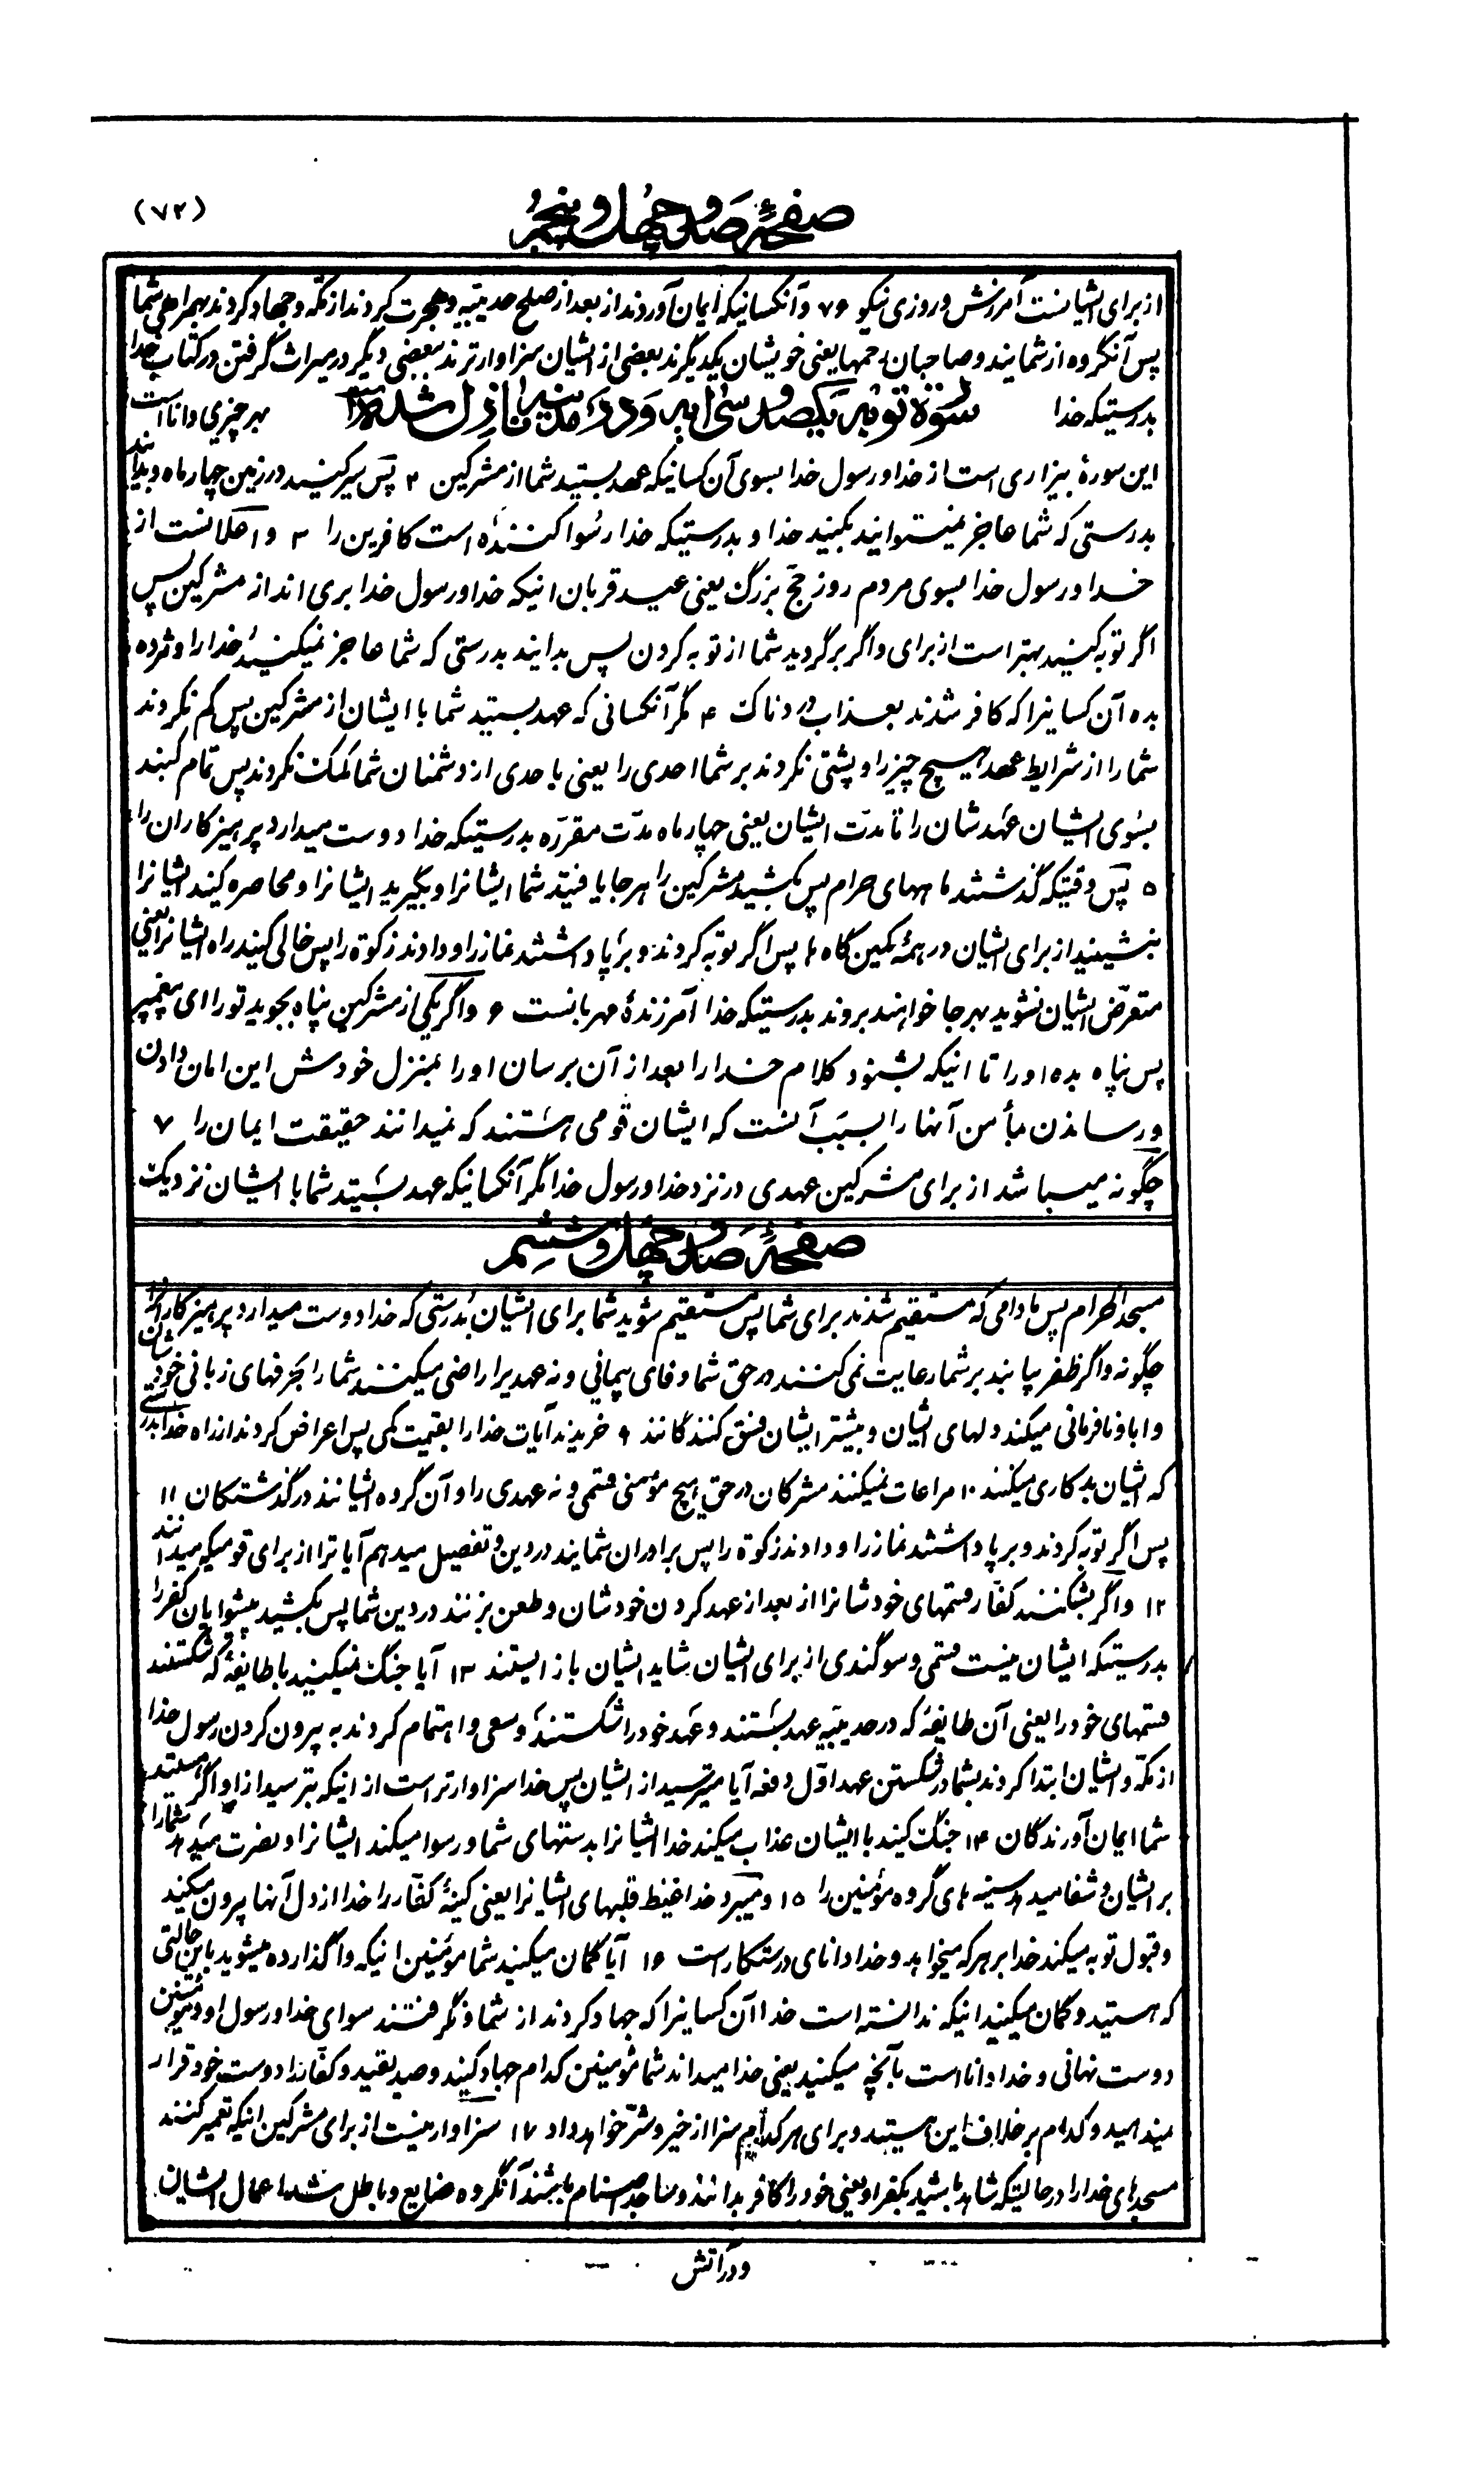 (۷۲)
صفحهٔ صد و چهل و پنجم
از برای ایشانست آمرزش و روزی نیکو ۷۶ و آنکسانیکه ایمان آوردند از بعد از صلح حدیبیه و هجرت کردند از مکه و جهاد کردند بهمراهی شما
پس آنگروه از شمایند و صاحبان رحمها یعنی خویشان یکدیگرند بعضی از ایشان سزاوارترند ببعضی دیگر در میراث گرفتن در کتاب خدا
بدرستیکه خدا بهر چیزی دانا است
سورهٔ توبه یکصد و سی ایه و در مدینه نازل شده
این سورهٔ بیزاری است از خدا و رسول خدا بسوی آن کسانیکه عهد بستید شما از مشرکین ۲ پس سیر کنید در زمین چهار ماه و بدانید
بدرستی که شما عاجز نمیتوانید بکنید خدا و بدرستیکه خدا رسوا کننده است کافرین را ۳ و اعلانست از
خدا و رسول خدا بسوی مردم روز حج بزرگ یعنی عید قربان اینکه خدا و رسول خدا بری اند از مشرکین پس
اگر توبه کنید بهتر است از برای و اگر برگردید شما از توبه کردن پس بدانید بدرستی که شما عاجز نمیکنید خدا را و مژده
بده آن کسانیرا که کافر شدند بعذاب دردناک ۴ مگر آنکسانی که عهد بستید شما با ایشان از مشرکین پس کم نکردند
شما را از شرایط عهد هیچ چیز را و پشتی نکردند بر شما احدی را یعنی با حدی از دشمنان شما کمک نکردند پس تمام کنید
بسوی ایشان عهدشان را تا مدت ایشان یعنی چهار ماه مدت مقرره بدرستیکه خدا دوست میدارد پرهیزکاران را
۵ پس وقتیکه گذشتند ماههای حرام پس بکشید مشرکین را هر جا یافتید شما ایشانرا و بگیرید ایشانرا و محاصره کنید ایشانرا
بنشینید از برای ایشان در همهٔ کمین گاه ها پس اگر توبه کردند و برپا داشتند نماز را و دادند زکوة را پس خالی کنید راه ایشانرا یعنی
متعرض ایشان نشوید بهر جا خواهند بروند بدرستیکه خدا آمرزندهٔ مهربانست ۶ و اگر یکی از مشرکین پناه بجوید تو را ای پیغمبر
پس پناه بده او را تا اینکه بشنود کلام خدا را بعد از آن برسان او را بمنزل خودش این امان دادن
و رساندن مأمن آنها را بسبب آنست که ایشان قومی هستند که نمیدانند حقیقت ایمان را ۷
چگونه میباشد از برای مشرکین عهدی در نزد خدا و رسول خدا مگر آنکسانیکه عهد بستید شما با ایشان نزدیک
صفحهٔ صد و چهل و ششم
مسجد الحرام پس مادامی که مستقیم شدند برای شما پس مستقیم شوید شما برای ایشان بدرستی که خدا دوست میدارد پرهیزکاران را
چگونه و اگر ظفر یابند بر شما رعایت نمی کنند در حق شما وفای پیمانی و نه عهدیرا راضی میکنند شما را بحرفهای زبانی خودشان
و ابا و نافرمانی میکند دلهای ایشان و بیشتر ایشان فسق کنندگانند ۹ خریدند آیات خدا را بقیمت کمی پس اعراض کردند از راه خدا بدرستی
که ایشان بدکاری میکنند ۱۰ مراعات نمیکنند مشرکان در حق هیچ مؤمنی قسمی و نه عهدی را و آن گروه ایشانند درگذشتکان ۱۱
پس اگر توبه کردند و برپا داشتند نماز را و دادند زکوة را پس برادران شمایند در دین و تفصیل میدهم آیاترا از برای قومیکه میدانند
۱۲ و اگر بشکنند کفار قسمهای خودشانرا از بعد از عهد کردن خودشان و طعن بزنند در دین شما پس بکشید پیشوایان کفر را
بدرستیکه ایشان نیست قسمی و سوگندی از برای ایشان شاید ایشان باز ایستند ۱۳ آیا جنگ نمیکنید با طایفهٔ که شکستند
قسمهای خود را یعنی آن طایفهٔ که در حدیبیه عهد بستند و عهد خود را شکستند و سعی و اهتمام کردند به بیرون کردن رسول خدا
از مکه و ایشان ابتدا کردند بشما در شکستن عهد اول دفعه آیا میترسید از ایشان پس خدا سزاوارتر است از اینکه بترسید از او اگر هستید
شما ایمان آورندگان ۱۴ جنگ کنید با ایشان عذاب میکند خدا ایشانرا بدستهای شما و رسوا میکند ایشانرا و نصرت میدهد شما را
بر ایشان و شفا میدهد سینه های گروه مؤمنین را ۱۵ و میبرد خدا غیظ قلبهای ایشانرا یعنی کینهٔ کفار را خدا از دل آنها بیرون میکند
و قبول توبه میکند خدا بر هر که میخواهد و خدا دانای درستکار است ۱۶ آیا گمان میکنید شما مؤمنین اینکه واگذارده میشوید باین حالتی
که هستید و گمان میکنید اینکه ندانسته است خدا آن کسانیرا که جهاد کردند از شما و نگرفتند سوای خدا و رسول او و مؤمنین
دوست نهانی و خدا دانا است بآنچه میکنید یعنی خدا میداند شما مؤمنین کدام جهاد کنید و صدیقید و کفار را دوست خود قرار
میدهید و کدام بر خلاف این هستید و برای هر کدام سزا از خیر و شر خواهد داد ۱۷ سزاوار نیست از برای مشرکین اینکه تعمیر کنند
مسجدهای خدا را در حالتیکه شاهد باشید بکفر او یعنی خود را کافر بدانند و ساجد اصنام باشند آنگروه ضایع و باطل شده اعمال ایشان
و در آتش